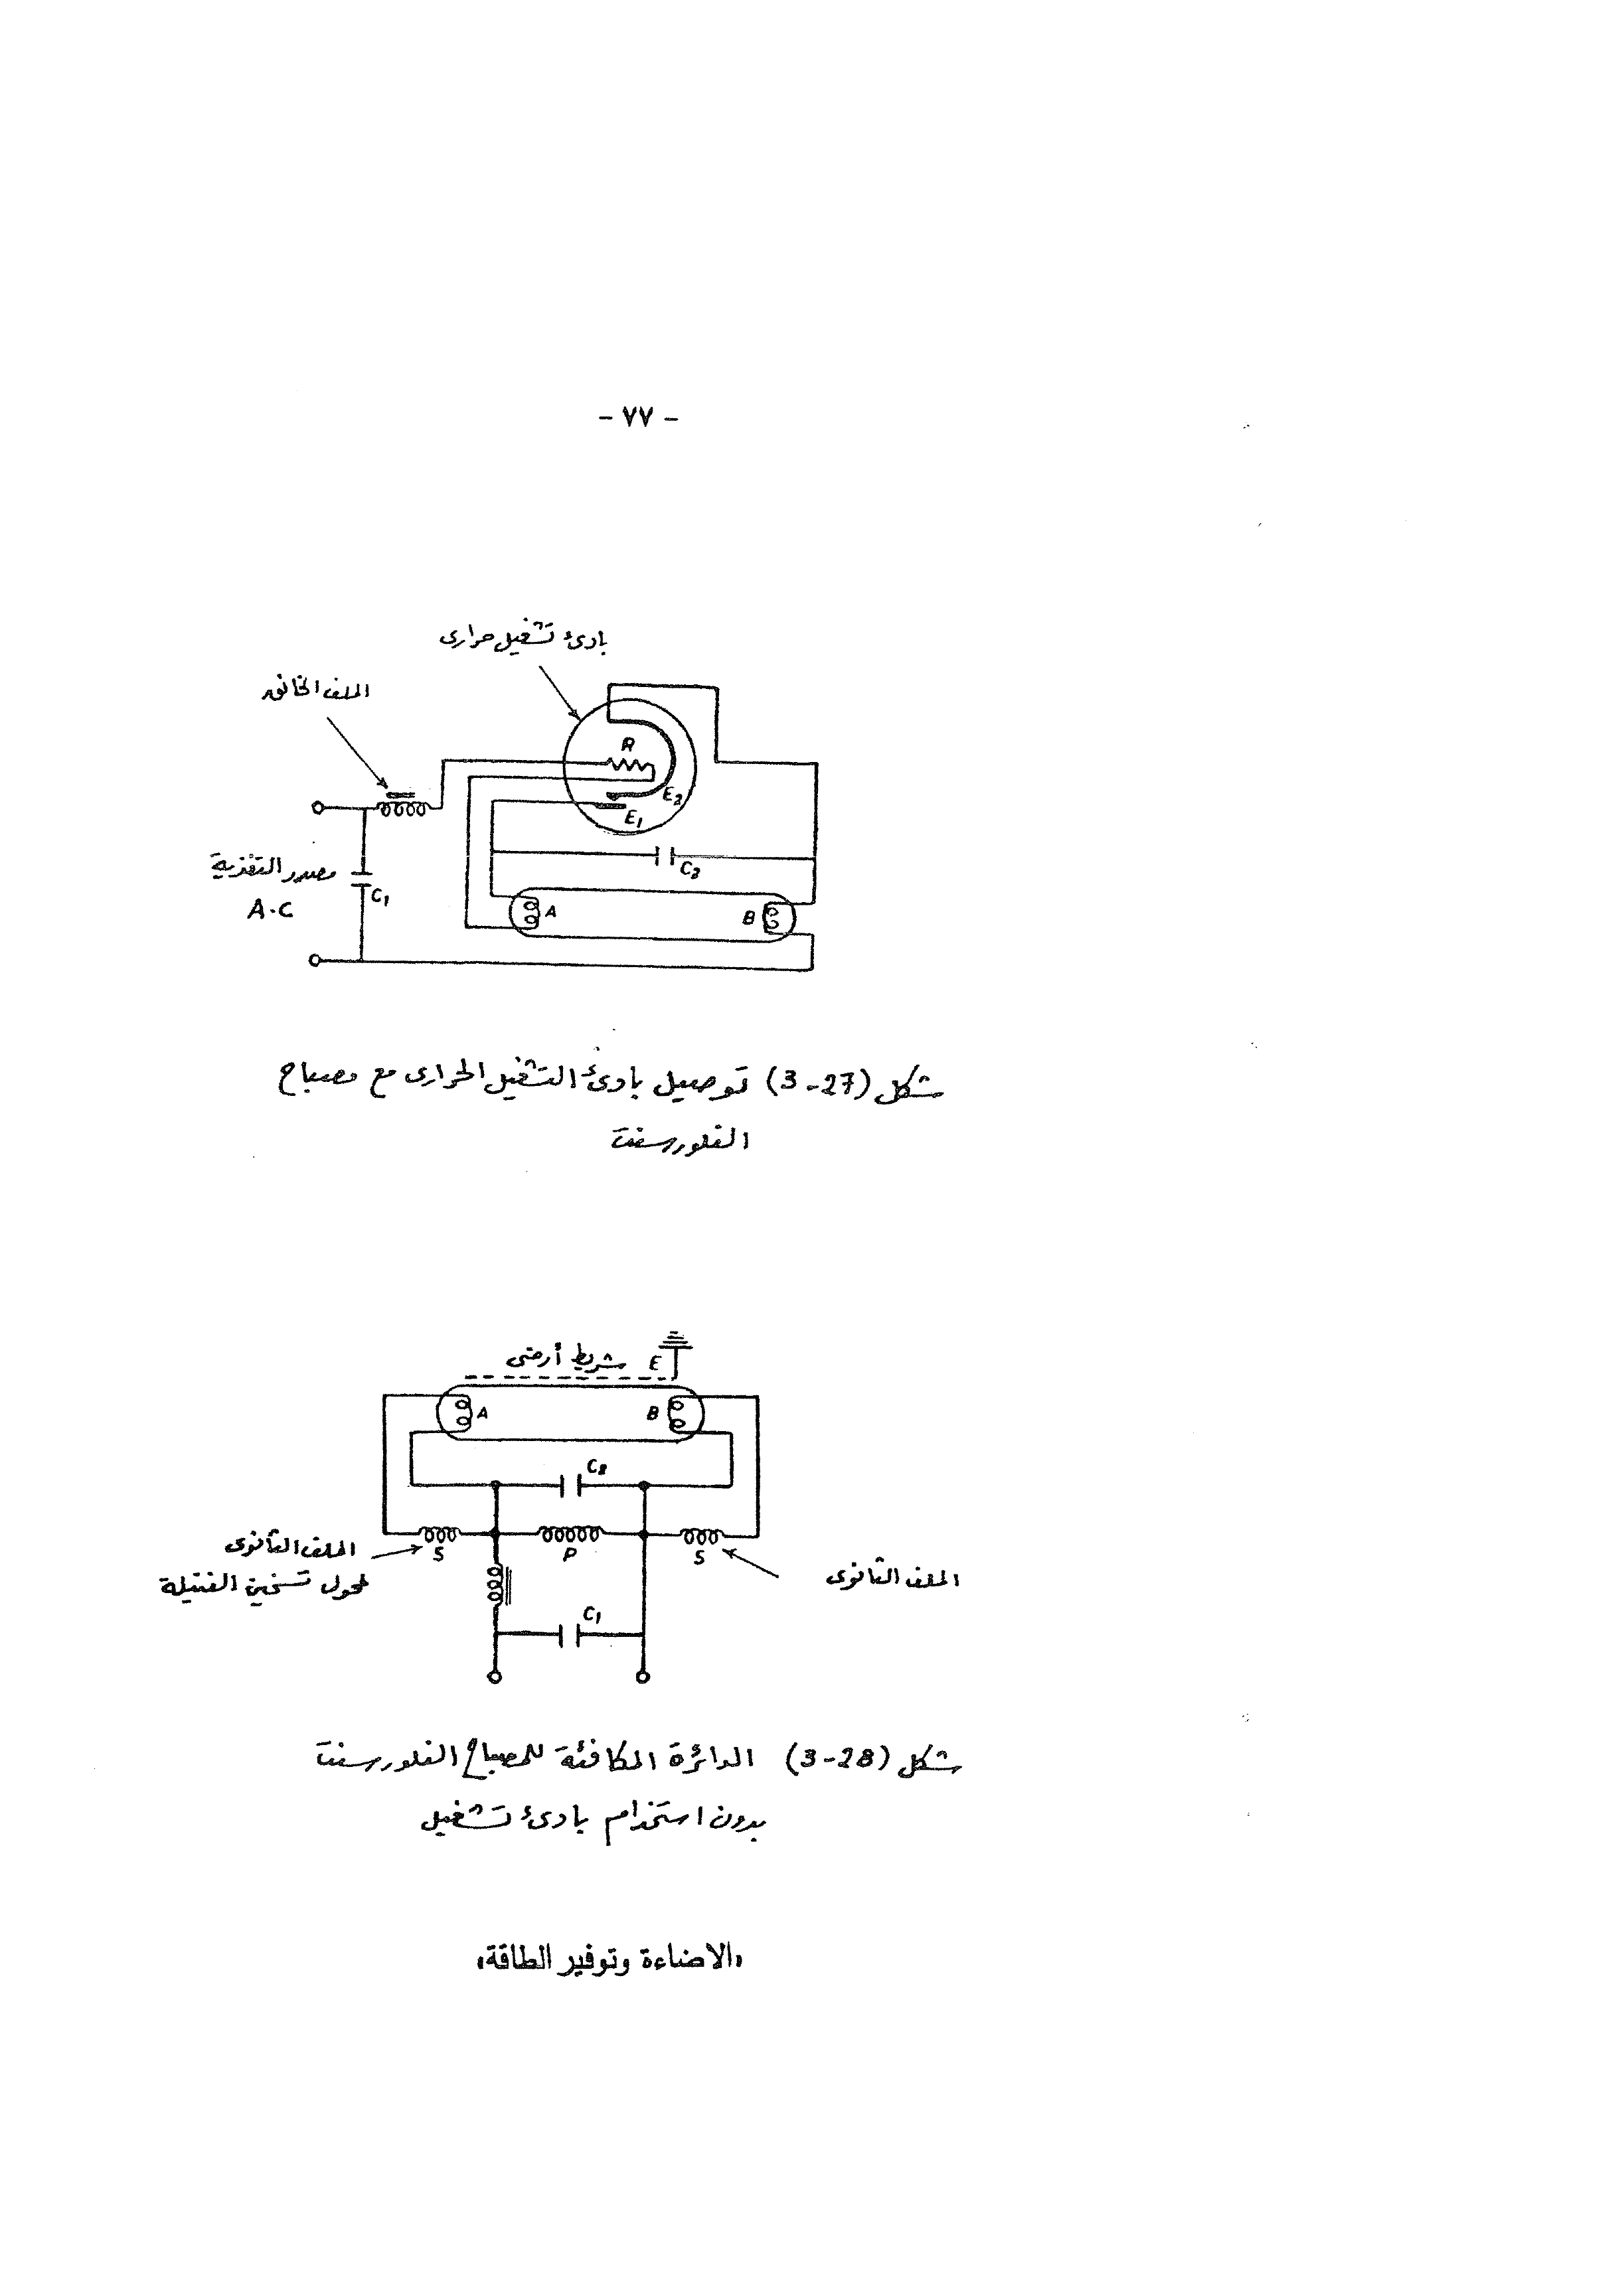 - ٧٧ -
بادئ تشغيل حرارى
الملف الخانق
R
E2
E1
C2
مصدر التغذية
A.C
C1
A
B
شكل (27-3) توصيل بادئ التشغيل الحرارى مع مصباح
الفلورسنت
شريط أرضى E
A
B
C2
الملف الثانوى
لمحول تسخين الفتيلة
S
P
S
الملف الثانوى
C1
شكل (28-3) الدائرة المكافئة للمصباح الفلورسنت
بدون استخدام بادئ تشغيل
«الاضاءة وتوفير الطاقة»